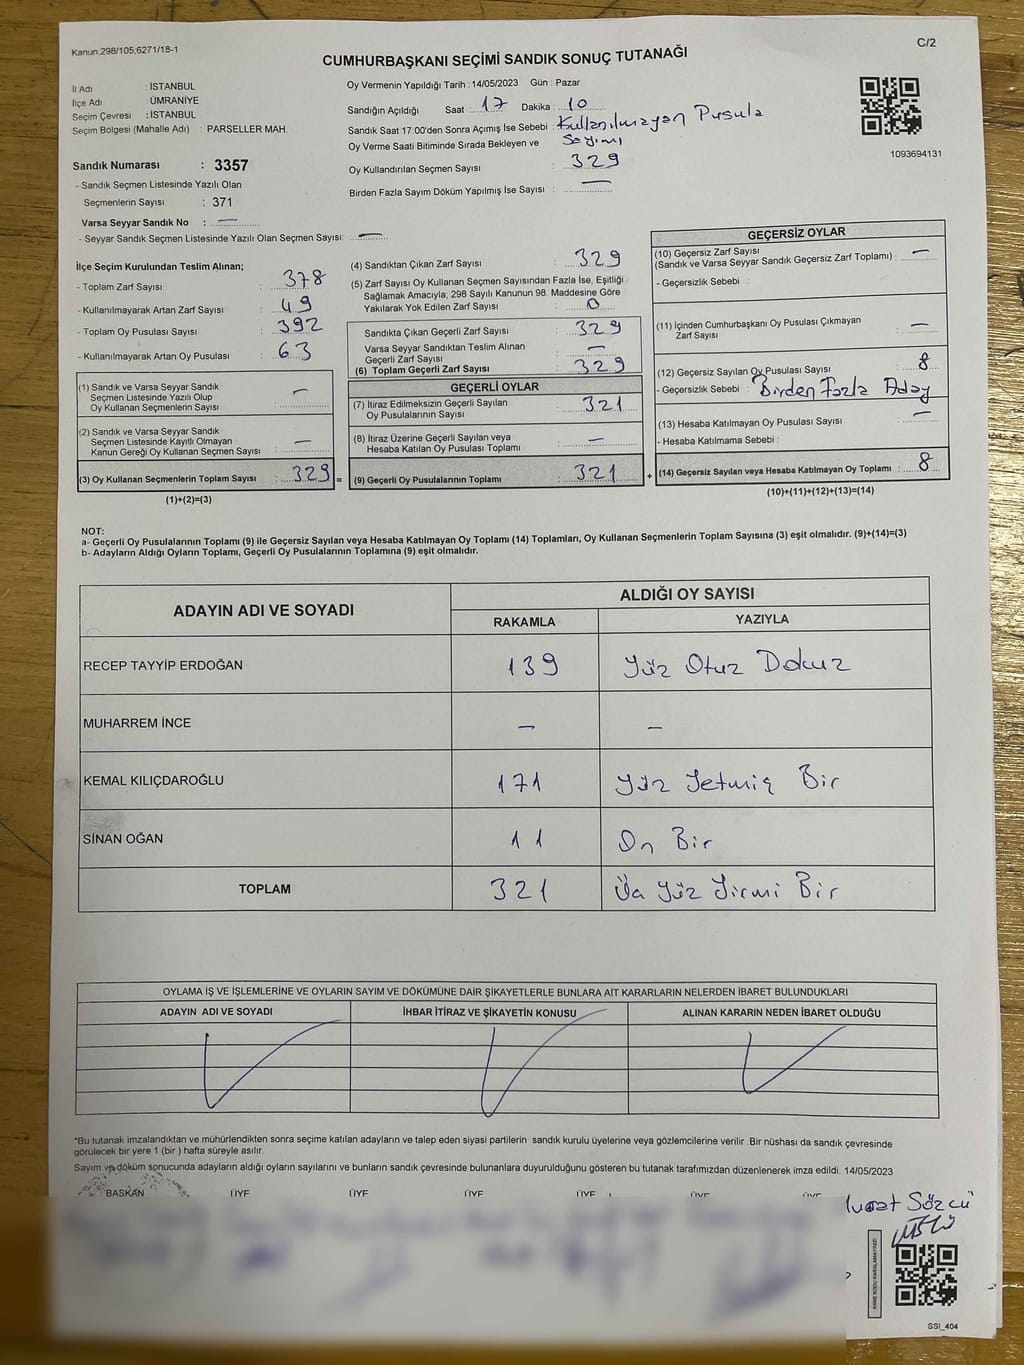 Kanun:298/105;6271/18-1
C/2
CUMHURBAŞKANI SEÇİMİ SANDIK SONUÇ TUTANAĞI
İl Adı : İSTANBUL
İlçe Adı : ÜMRANİYE
Seçim Çevresi : İSTANBUL
Seçim Bölgesi (Mahalle Adı) : PARSELLER MAH.
Sandık Numarası : 3357
- Sandık Seçmen Listesinde Yazılı Olan
Seçmenlerin Sayısı : 371
Varsa Seyyar Sandık No : —
- Seyyar Sandık Seçmen Listesinde Yazılı Olan Seçmen Sayısı: —
Oy Vermenin Yapıldığı Tarih : 14/05/2023 Gün : Pazar
Sandığın Açıldığı Saat : 17 Dakika : 10
Sandık Saat 17:00'den Sonra Açımış İse Sebebi : Kullanılmayan Pusula
Oy Verme Saati Bitiminde Sırada Bekleyen ve Sayımı
Oy Kullandırılan Seçmen Sayısı : 329
Birden Fazla Sayım Döküm Yapılmış İse Sayısı : —
1093694131
İlçe Seçim Kurulundan Teslim Alınan;
- Toplam Zarf Sayısı : 378
- Kullanılmayarak Artan Zarf Sayısı : 49
- Toplam Oy Pusulası Sayısı : 392
- Kullanılmayarak Artan Oy Pusulası : 63
(1) Sandık ve Varsa Seyyar Sandık
Seçmen Listesinde Yazılı Olup
Oy Kullanan Seçmenlerin Sayısı : —
(2) Sandık ve Varsa Seyyar Sandık
Seçmen Listesinde Kayıtlı Olmayan
Kanun Gereği Oy Kullanan Seçmen Sayısı : —
(3) Oy Kullanan Seçmenlerin Toplam Sayısı : 329 =
(1)+(2)=(3)
(4) Sandıktan Çıkan Zarf Sayısı : 329
(5) Zarf Sayısı Oy Kullanan Seçmen Sayısından Fazla İse, Eşitliği
Sağlamak Amacıyla; 298 Sayılı Kanunun 98. Maddesine Göre
Yakılarak Yok Edilen Zarf Sayısı : 0
Sandıkta Çıkan Geçerli Zarf Sayısı : 329
Varsa Seyyar Sandıktan Teslim Alınan
Geçerli Zarf Sayısı : —
(6) Toplam Geçerli Zarf Sayısı : 329
GEÇERLİ OYLAR
(7) İtiraz Edilmeksizin Geçerli Sayılan
Oy Pusulalarının Sayısı : 321
(8) İtiraz Üzerine Geçerli Sayılan veya
Hesaba Katılan Oy Pusulası Toplamı : —
(9) Geçerli Oy Pusulalarının Toplamı : 321 +
GEÇERSİZ OYLAR
(10) Geçersiz Zarf Sayısı
(Sandık ve Varsa Seyyar Sandık Geçersiz Zarf Toplamı) : —
- Geçersizlik Sebebi :
(11) İçinden Cumhurbaşkanı Oy Pusulası Çıkmayan
Zarf Sayısı : —
(12) Geçersiz Sayılan Oy Pusulası Sayısı : 8
- Geçersizlik Sebebi : Birden Fazla Aday
(13) Hesaba Katılmayan Oy Pusulası Sayısı : —
- Hesaba Katılmama Sebebi :
(14) Geçersiz Sayılan veya Hesaba Katılmayan Oy Toplamı : 8
(10)+(11)+(12)+(13)=(14)
NOT:
a- Geçerli Oy Pusulalarının Toplamı (9) ile Geçersiz Sayılan veya Hesaba Katılmayan Oy Toplamı (14) Toplamları, Oy Kullanan Seçmenlerin Toplam Sayısına (3) eşit olmalıdır. (9)+(14)=(3)
b- Adayların Aldığı Oyların Toplamı, Geçerli Oy Pusulalarının Toplamına (9) eşit olmalıdır.
ADAYIN ADI VE SOYADI ALDIĞI OY SAYISI
RAKAMLA YAZIYLA
RECEP TAYYİP ERDOĞAN 139 Yüz Otuz Dokuz
MUHARREM İNCE — —
KEMAL KILIÇDAROĞLU 171 Yüz Yetmiş Bir
SİNAN OĞAN 11 On Bir
TOPLAM 321 Üç Yüz Yirmi Bir
OYLAMA İŞ VE İŞLEMLERİNE VE OYLARIN SAYIM VE DÖKÜMÜNE DAİR ŞİKAYETLERLE BUNLARA AİT KARARLARIN NELERDEN İBARET BULUNDUKLARI
ADAYIN ADI VE SOYADI İHBAR İTİRAZ VE ŞİKAYETİN KONUSU ALINAN KARARIN NEDEN İBARET OLDUĞU
*Bu tutanak imzalandıktan ve mühürlendikten sonra seçime katılan adayların ve talep eden siyasi partilerin sandık kurulu üyelerine veya gözlemcilerine verilir .Bir nüshası da sandık çevresinde
görülecek bir yere 1 (bir ) hafta süreyle asılır.
Sayım ve döküm sonucunda adayların aldığı oyların sayılarını ve bunların sandık çevresinde bulunanlara duyurulduğunu gösteren bu tutanak tarafımızdan düzenlenerek imza edildi. 14/05/2023
BAŞKAN ÜYE ÜYE ÜYE ÜYE ÜYE ÜYE
Sözcü
KARE KODU KARALAMAYINIZ!
SSI_404